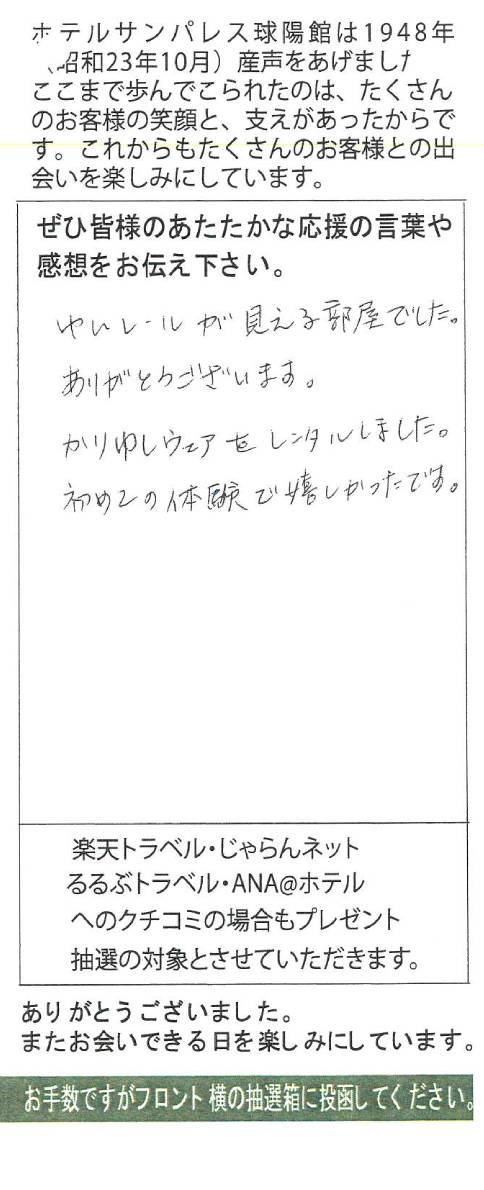 ホテルサンパレス球陽館は1948年
（昭和23年10月）産声をあげました
ここまで歩んでこられたのは、たくさん
のお客様の笑顔と、支えがあったからで
す。これからもたくさんのお客様との出
会いを楽しみにしています。
ぜひ皆様のあたたかな応援の言葉や
感想をお伝え下さい。
ゆいレールが見える部屋でした。
ありがとうございます。
かりゆしウェアをレンタルしました。
初めての体験で嬉しかったです。
楽天トラベル・じゃらんネット
るるぶトラベル・ANA@ホテル
へのクチコミの場合もプレゼント
抽選の対象とさせていただきます。
ありがとうございました。
またお会いできる日を楽しみにしています。
お手数ですがフロント横の抽選箱に投函してください。